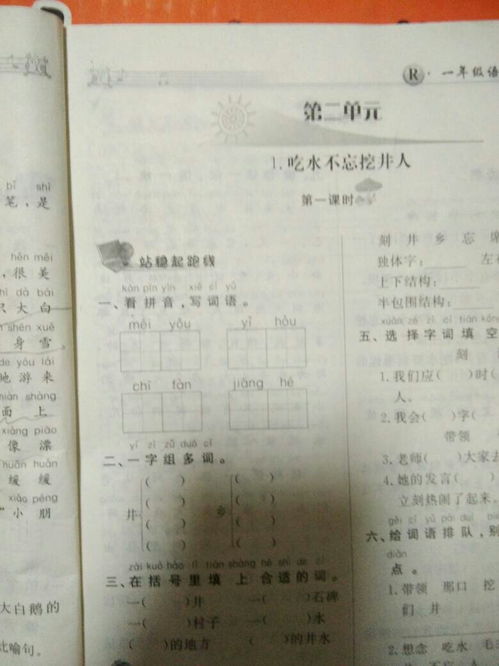 bǐ shì
笔，是
hěn měi
，很 美
shì dà bái
只 大 白
shēn xuě
身 雪
de yóu lái
地 游 来
miàn shàng
面 上
xiàng piāo
像 漂
huǎn huǎn
缓 缓
xiǎo péng
“小 朋
大白鹅的
比喻句。
R · 一年级语
第二单元
1.吃水不忘挖井人
第一课时
站稳起跑线
kàn pīn yīn xiě cí yǔ
一、看拼音，写词语。
méi yǒu yǐ hòu
chī fàn jiāng hé
yí zì zǔ duō cí
二、一字组多词。
井 ( ) ( ) ( ) ( )
乡 ( ) ( ) ( ) ( )
zài kuò hào lǐ tián shàng hé shì de cí
三、在括号里填上合适的词。
一( )井 一( )石碑
一( )村子 一( )水
( )的地方 ( )的井水
刻 井 乡 忘 席
独体字： 左右
上下结构：
半包围结构：
xuǎn zé zì cí tián kòng
五、选择字词填空
刻
1.我们应( )时(
人。
2.我会( )字(
带领
3.老师( )大家去
4.她的发言(
立刻热闹了起来
gěi cí yǔ pái duì
六、给词语排队，别
diǎn
点。
1.带领 那口 挖
们 井
2.想念 吃水 毛